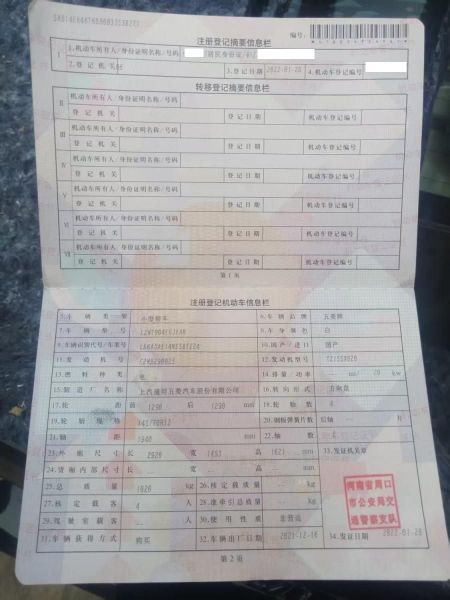 注册登记摘要信息栏
编号:
I
1.机动车所有人/身份证明名称/号码 /居民身份证/
2.登记机关
3.登记日期 2022-01-20
4.机动车登记编号
转移登记摘要信息栏
II
机动车所有人/身份证明名称/号码
登记机关 登记日期 机动车登记编号
III
机动车所有人/身份证明名称/号码
登记机关 登记日期 机动车登记编号
IV
机动车所有人/身份证明名称/号码
登记机关 登记日期 机动车登记编号
V
机动车所有人/身份证明名称/号码
登记机关 登记日期 机动车登记编号
VI
机动车所有人/身份证明名称/号码
登记机关 登记日期 机动车登记编号
VII
机动车所有人/身份证明名称/号码
登记机关 登记日期 机动车登记编号
第1页
注册登记机动车信息栏
5.车辆类型 小型轿车 6.车辆品牌 五菱牌
7.车辆型号 8.车身颜色 白
9.车辆识别代号/车架号 10.国产/进口 国产
11.发动机号 12.发动机型号 TZ155X020
13.燃料种类 电 14.排量/功率 ml/ 20 kw
15.制造厂名称 上汽通用五菱汽车股份有限公司 16.转向形式 方向盘
17.轮距 前 1290 后 1290 mm 18.轮胎数 4
19.轮胎规格 145/70R12 20.钢板弹簧片数 后轴 片
21.轴距 1940 mm 22.轴数 2
23.外廓尺寸 长 2920 宽 1493 高 1621 mm 33.发证机关章
24.货厢内部尺寸 长 宽 高 mm
25.总质量 kg 26.核定载质量 kg
27.核定载客 4 人 28.准牵引总质量 kg
29.驾驶室载客 人 30.使用性质 非营运
31.车辆获得方式 购买 32.车辆出厂日期 2021-12-16 34.发证日期 2022-01-20
河南省周口
市公安局交
通警察支队
第2页